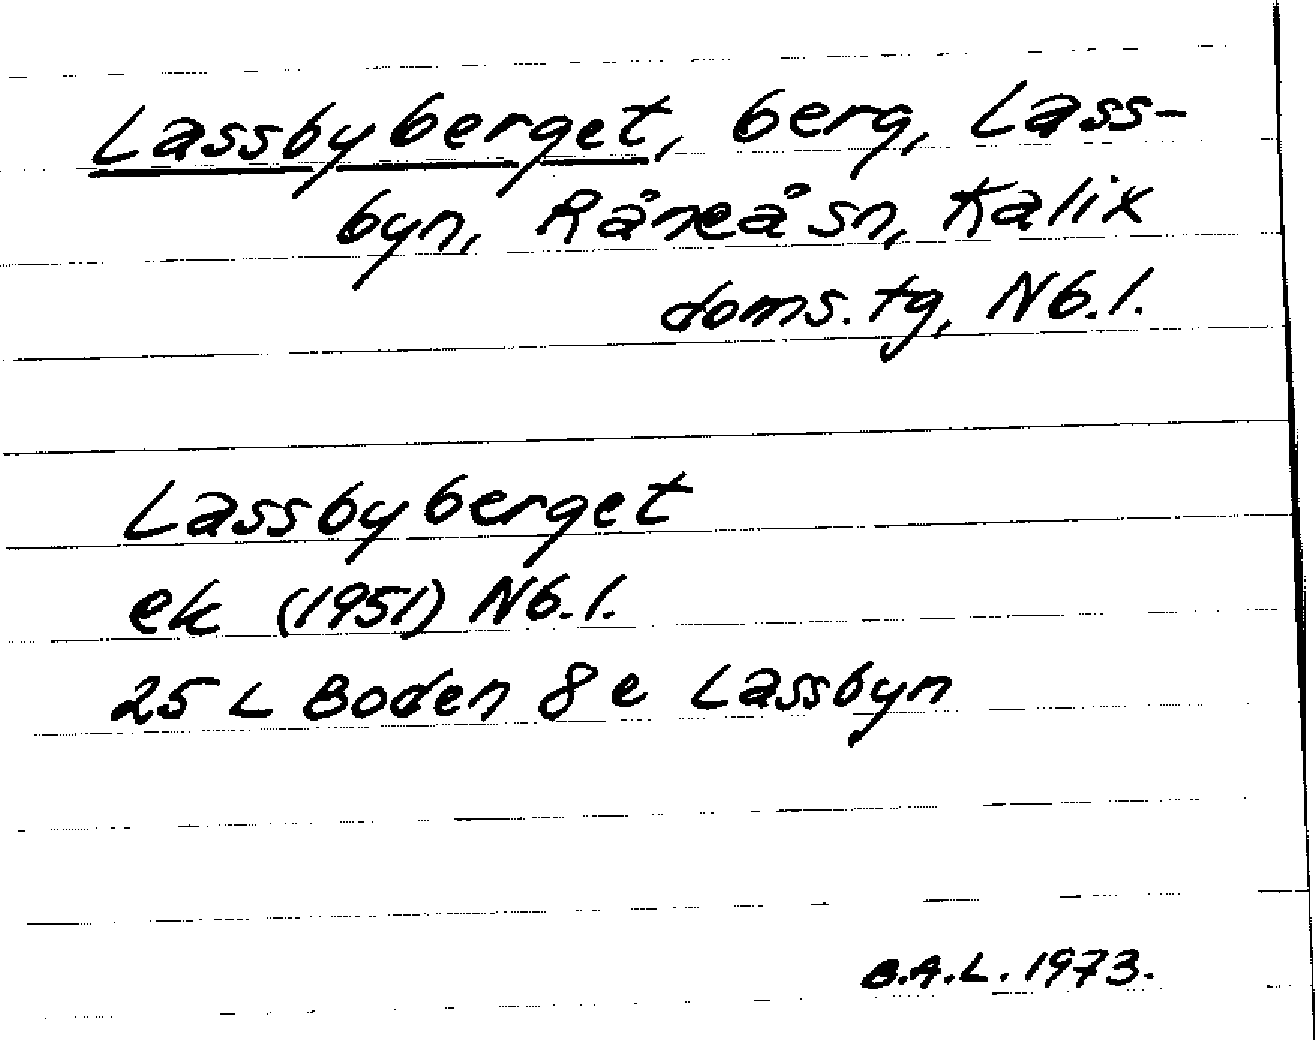 Lassbyberget, berg, Lass-
byn, Råneå sn, Kalix
doms. tg, Nb.l.
Lassbyberget
ek (1951) Nb.l.
25 L Boden 8 e Lassbyn
B.A.L. 1973.